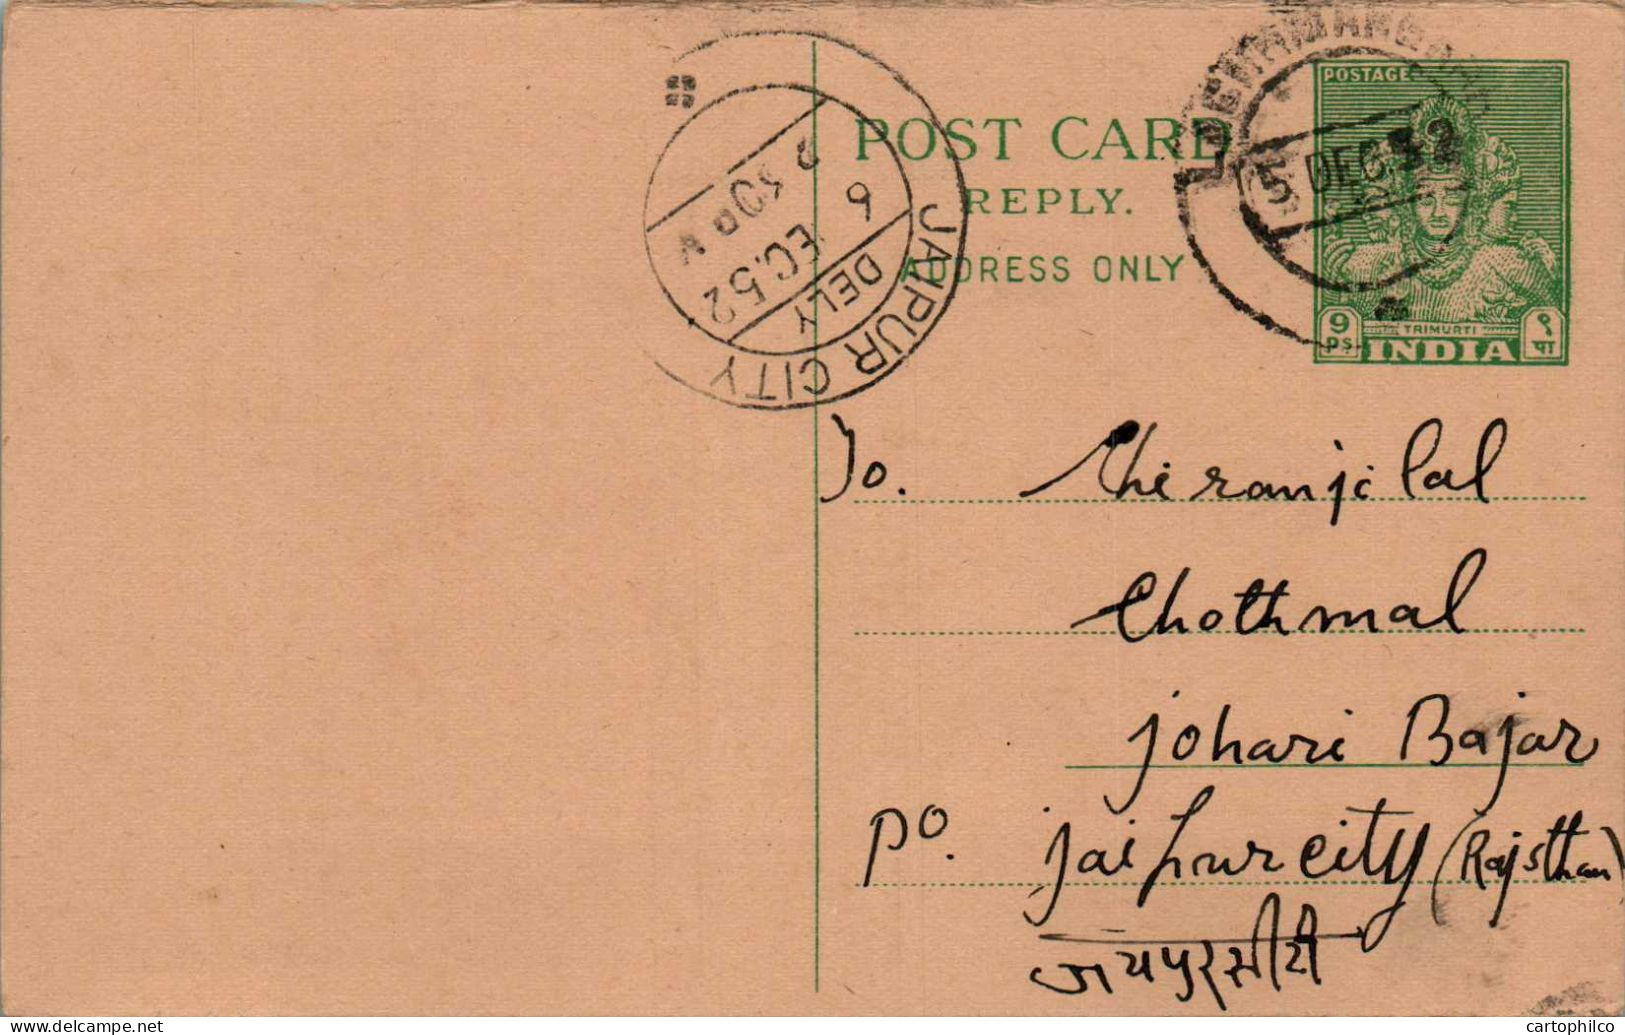 POST CARD
REPLY.
ADDRESS ONLY
POSTAGE
TRIMURTI
9 ps. INDIA ९ पा
5 DEC. 52
JAIPUR CITY
2 30 P
6 EC. 52
DELY
To. Chiranji lal
Chothmal
Johari Bajar
PO. Jaipur city (Rajsthan)
जयपुर सीटी
cartophilco